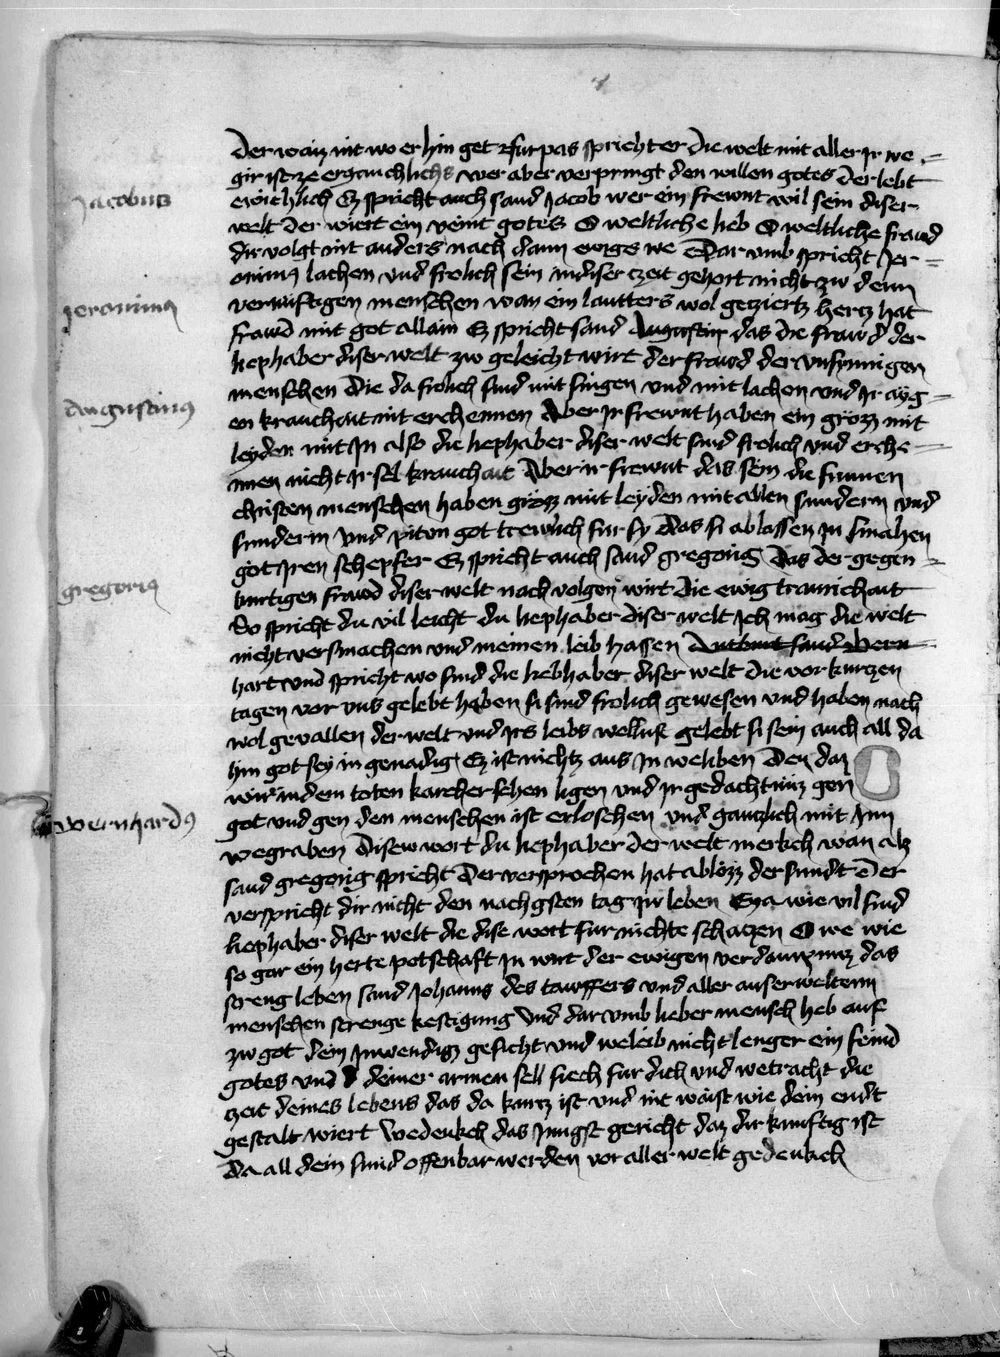 der waiz nit wo er hin get Furpas spricht er die welt mit aller Jr we =
gir ist zergauchlichs wer aber verpringt den willen gotes der lebt
Jacobus
ewichlich Ez spricht auch sand Jacob wer ein frewnt wil sein diser
welt der wiert ein veint gotes O weltliche lieb O weltliche frawd
dir volgt nit anders nach dann ewigs we Dar umb spricht Jer =
onimus lachen und frolich sein in diser czeit gehort nicht zw denn
Jeronimus
vernuftigen menschen wan ein lautters wol geziertz hercz hat
frawd mit got allain Ez spricht sand Augustein das die frawd der
liephaber diser welt zw geleicht wirt der frawd der unsynnigen
menschen die da frolich sind mit singen und mit lachen und Jr ayg =
Augustinus
en kranchait nit erchennen Aber Jr frewnt haben ein grozz mit
leyden mit In also die liephaber diser welt sind frolich und erche =
nnen nicht Jr sel kranchait Aber ir frewnt das sein die frumen
christen menschen haben grozz mit leyden mit allen sundern und
sunderin und piten got trewlich fur sy das si ablassen zu smahen
got Jren schepfer Ez spricht auch sand gregorig das der gegen =
gregorius
burtigen frawd diser welt nach volgen wirt die ewig traurichait
So spricht du vil leicht du liephaber diser welt Ich mag die welt
nicht versmachen und meinen leib hassen Antburt sand Bern
hart und spricht wo sind die liebhaber diser welt die vor kurczen
tagen vor uns gelebt haben si sind frolich gewesen und haben nach
wol gevallen der welt und Jrs leibs wollust gelebt si sein auch all da
hin got sey in genadig Ez ist nichtz aus In weliben Den daz
wir in dem toten karcher sehen ligen und Jr gedachtnuz gen
got und gen den menschen ist erloschen und gantzlich mit Inn
Wernhardus
wegraben Disew wort du liephaber der welt merkch wan alz
sand gregorig spricht Der versprochen hat ablozz der sundt Der
verspricht dir nicht den nachgsten tag zu leben Eya wie vil sind
liephaber diser welt die dise wort fur nichte schatzen O we wie
so gar ein herte potschaft In wirt der ewigen verdampnuz das
streng leben sand Johanns des tawffers und aller auserweltenn
menschen strenge kestigung Und dar umb lieber mensch heb auf
zw got dein Inwendigz gesicht und weleib nicht lenger ein feind
gotes und deiner armen sell siech fur dich und wetracht die
zeit deines lebens das da kurcz ist und nit waist wie dein endt
gestalt wiert Wedenkch das Jungst gericht daz dir kunftig ist
da all dein sund offenbar werden vor aller welt gedenkch